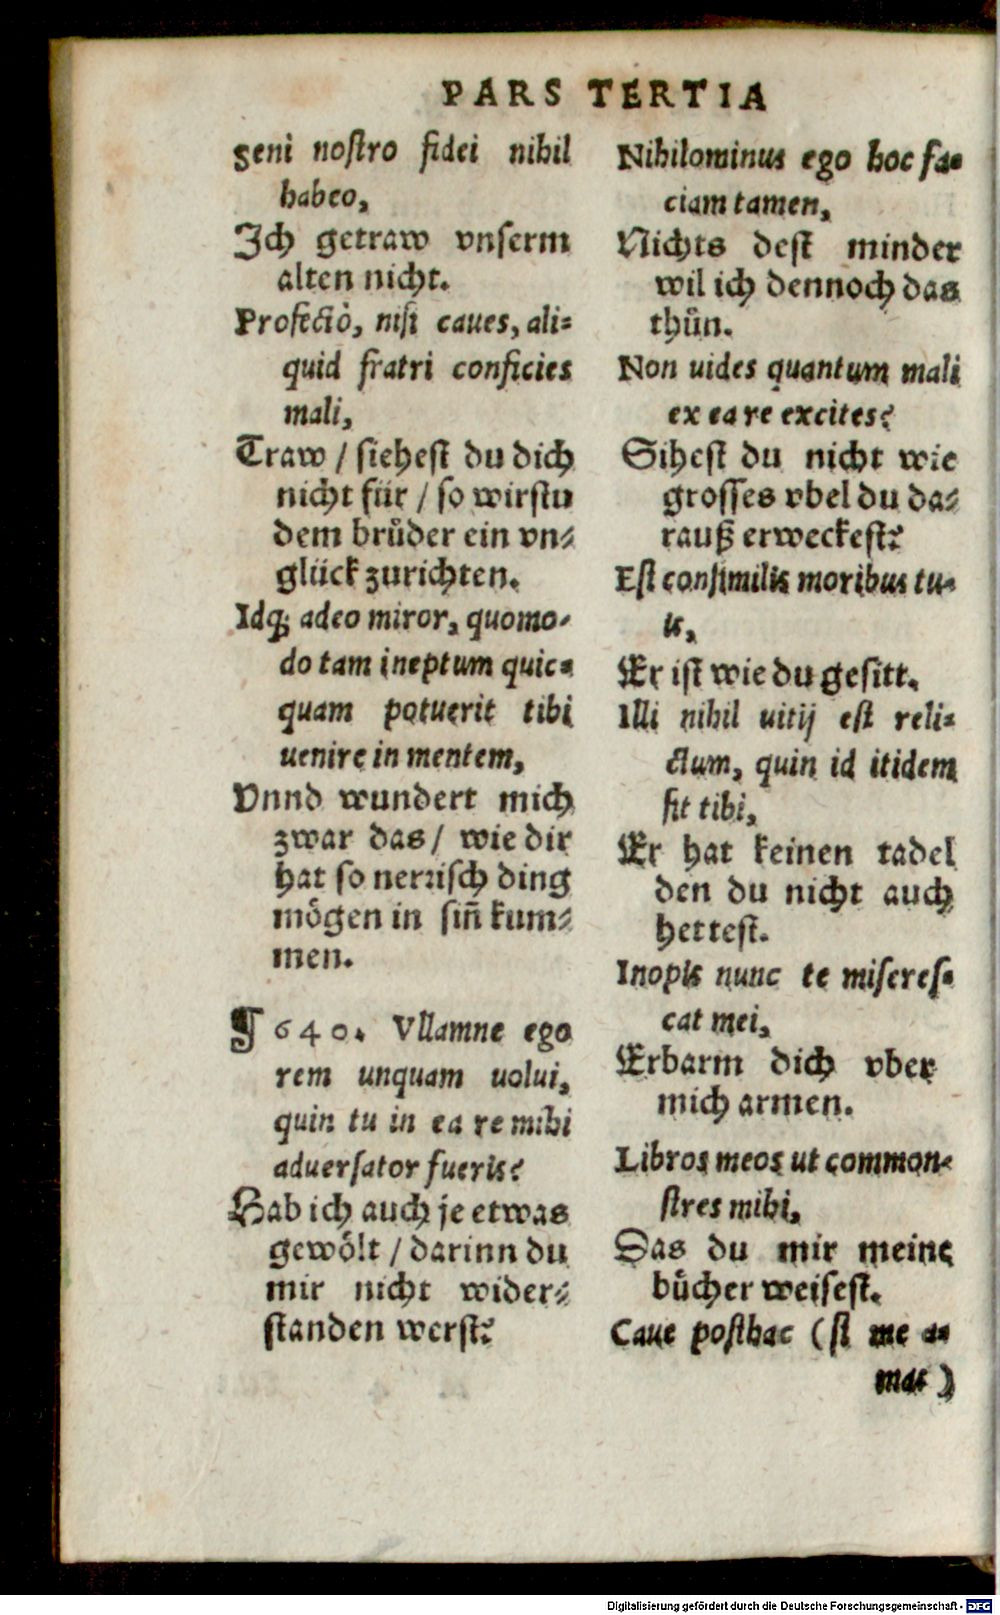 PARS TERTIA
geni noſtro fidei nihil
habeo,
Ich getraw vnſerm
alten nicht.
Profectò, niſi caues, ali=
quid fratri conficies
mali,
Traw / ſieheſt du dich
nicht für / ſo wirſtu
dem brůder ein vn⸗
glück zurichten.
Idq́; adeo miror, quomo-
do tam ineptum quic=
quam potuerit tibi
uenire in mentem,
Vnnd wundert mich
zwar das / wie dir
hat ſo nerriſch ding
mögen in ſiñ kum⸗
men.
¶ 640. Vllamne ego
rem unquam uolui,
quin tu in ea re mihi
aduerſator fueris?
Hab ich auch je etwas
gewölt / darinn du
mir nicht wider⸗
ſtanden werſt?
Nihilominus ego hoc fa=
ciam tamen,
Nichts deſt minder
wil ich dennoch das
thůn.
Non uides quantum mali
ex ea re excites?
Siheſt du nicht wie
groſſes vbel du da⸗
rauß erweckeſt?
Eſt conſimilis moribus tu=
is,
Er iſt wie du geſitt.
Illi nihil uitij eſt reli=
ctum, quin id itidem
ſit tibi,
Er hat keinen tadel
den du nicht auch
hetteſt.
Inopis nunc te miſereſ=
cat mei,
Erbarm dich vber
mich armen.
Libros meos ut common=
ſtres mihi,
Das du mir meine
bůcher weiſeſt.
Caue poſthac (ſi me a=
mas )
Digitalisierung gefördert durch die Deutsche Forschungsgemeinschaft - DFG